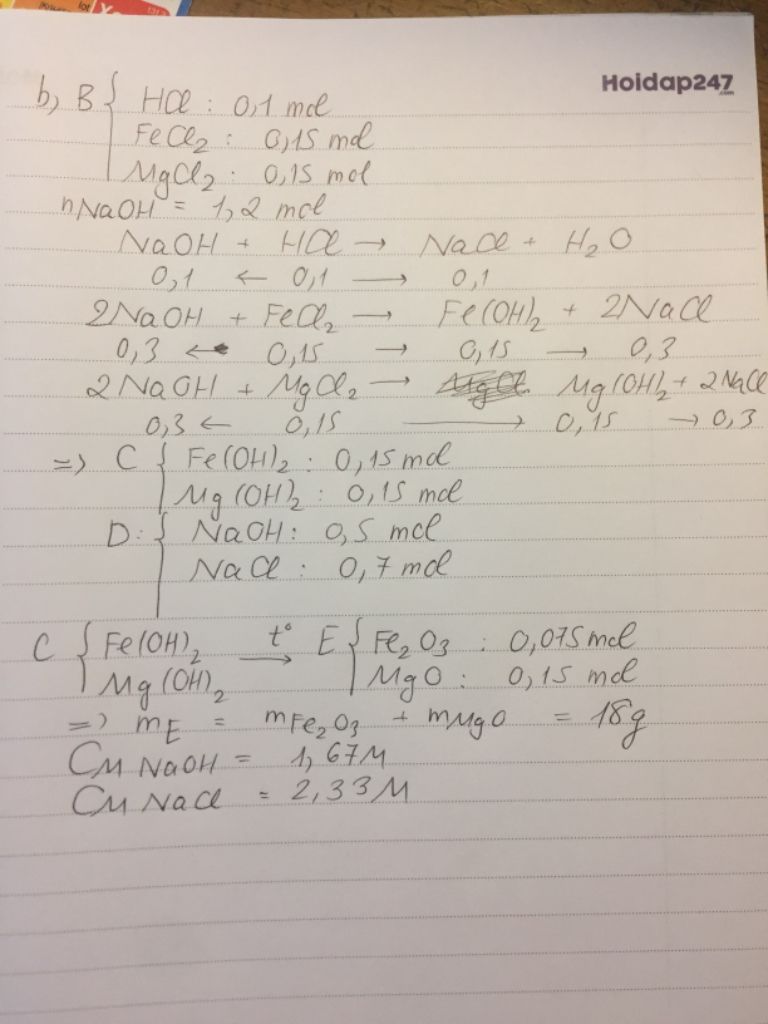 Hoidap247
.com
b, B { HCl : 0,1 mol
FeCl₂ : 0,15 mol
MgCl₂ : 0,15 mol
nNaOH = 1,2 mol
NaOH + HCl → NaCl + H₂O
0,1 ← 0,1 → 0,1
2NaOH + FeCl₂ → Fe(OH)₂ + 2NaCl
0,3 ← 0,15 → 0,15 → 0,3
2NaOH + MgCl₂ → Mg(OH)₂ + 2NaCl
0,3 ← 0,15 → 0,15 → 0,3
=> C { Fe(OH)₂ : 0,15 mol
Mg(OH)₂ : 0,15 mol
D: { NaOH : 0,5 mol
NaCl : 0,7 mol
C { Fe(OH)₂ t° → E { Fe₂O₃ : 0,075 mol
Mg(OH)₂ MgO : 0,15 mol
=> mE = mFe₂O₃ + mMgO = 18g
CM NaOH = 1,67M
CM NaCl = 2,33M